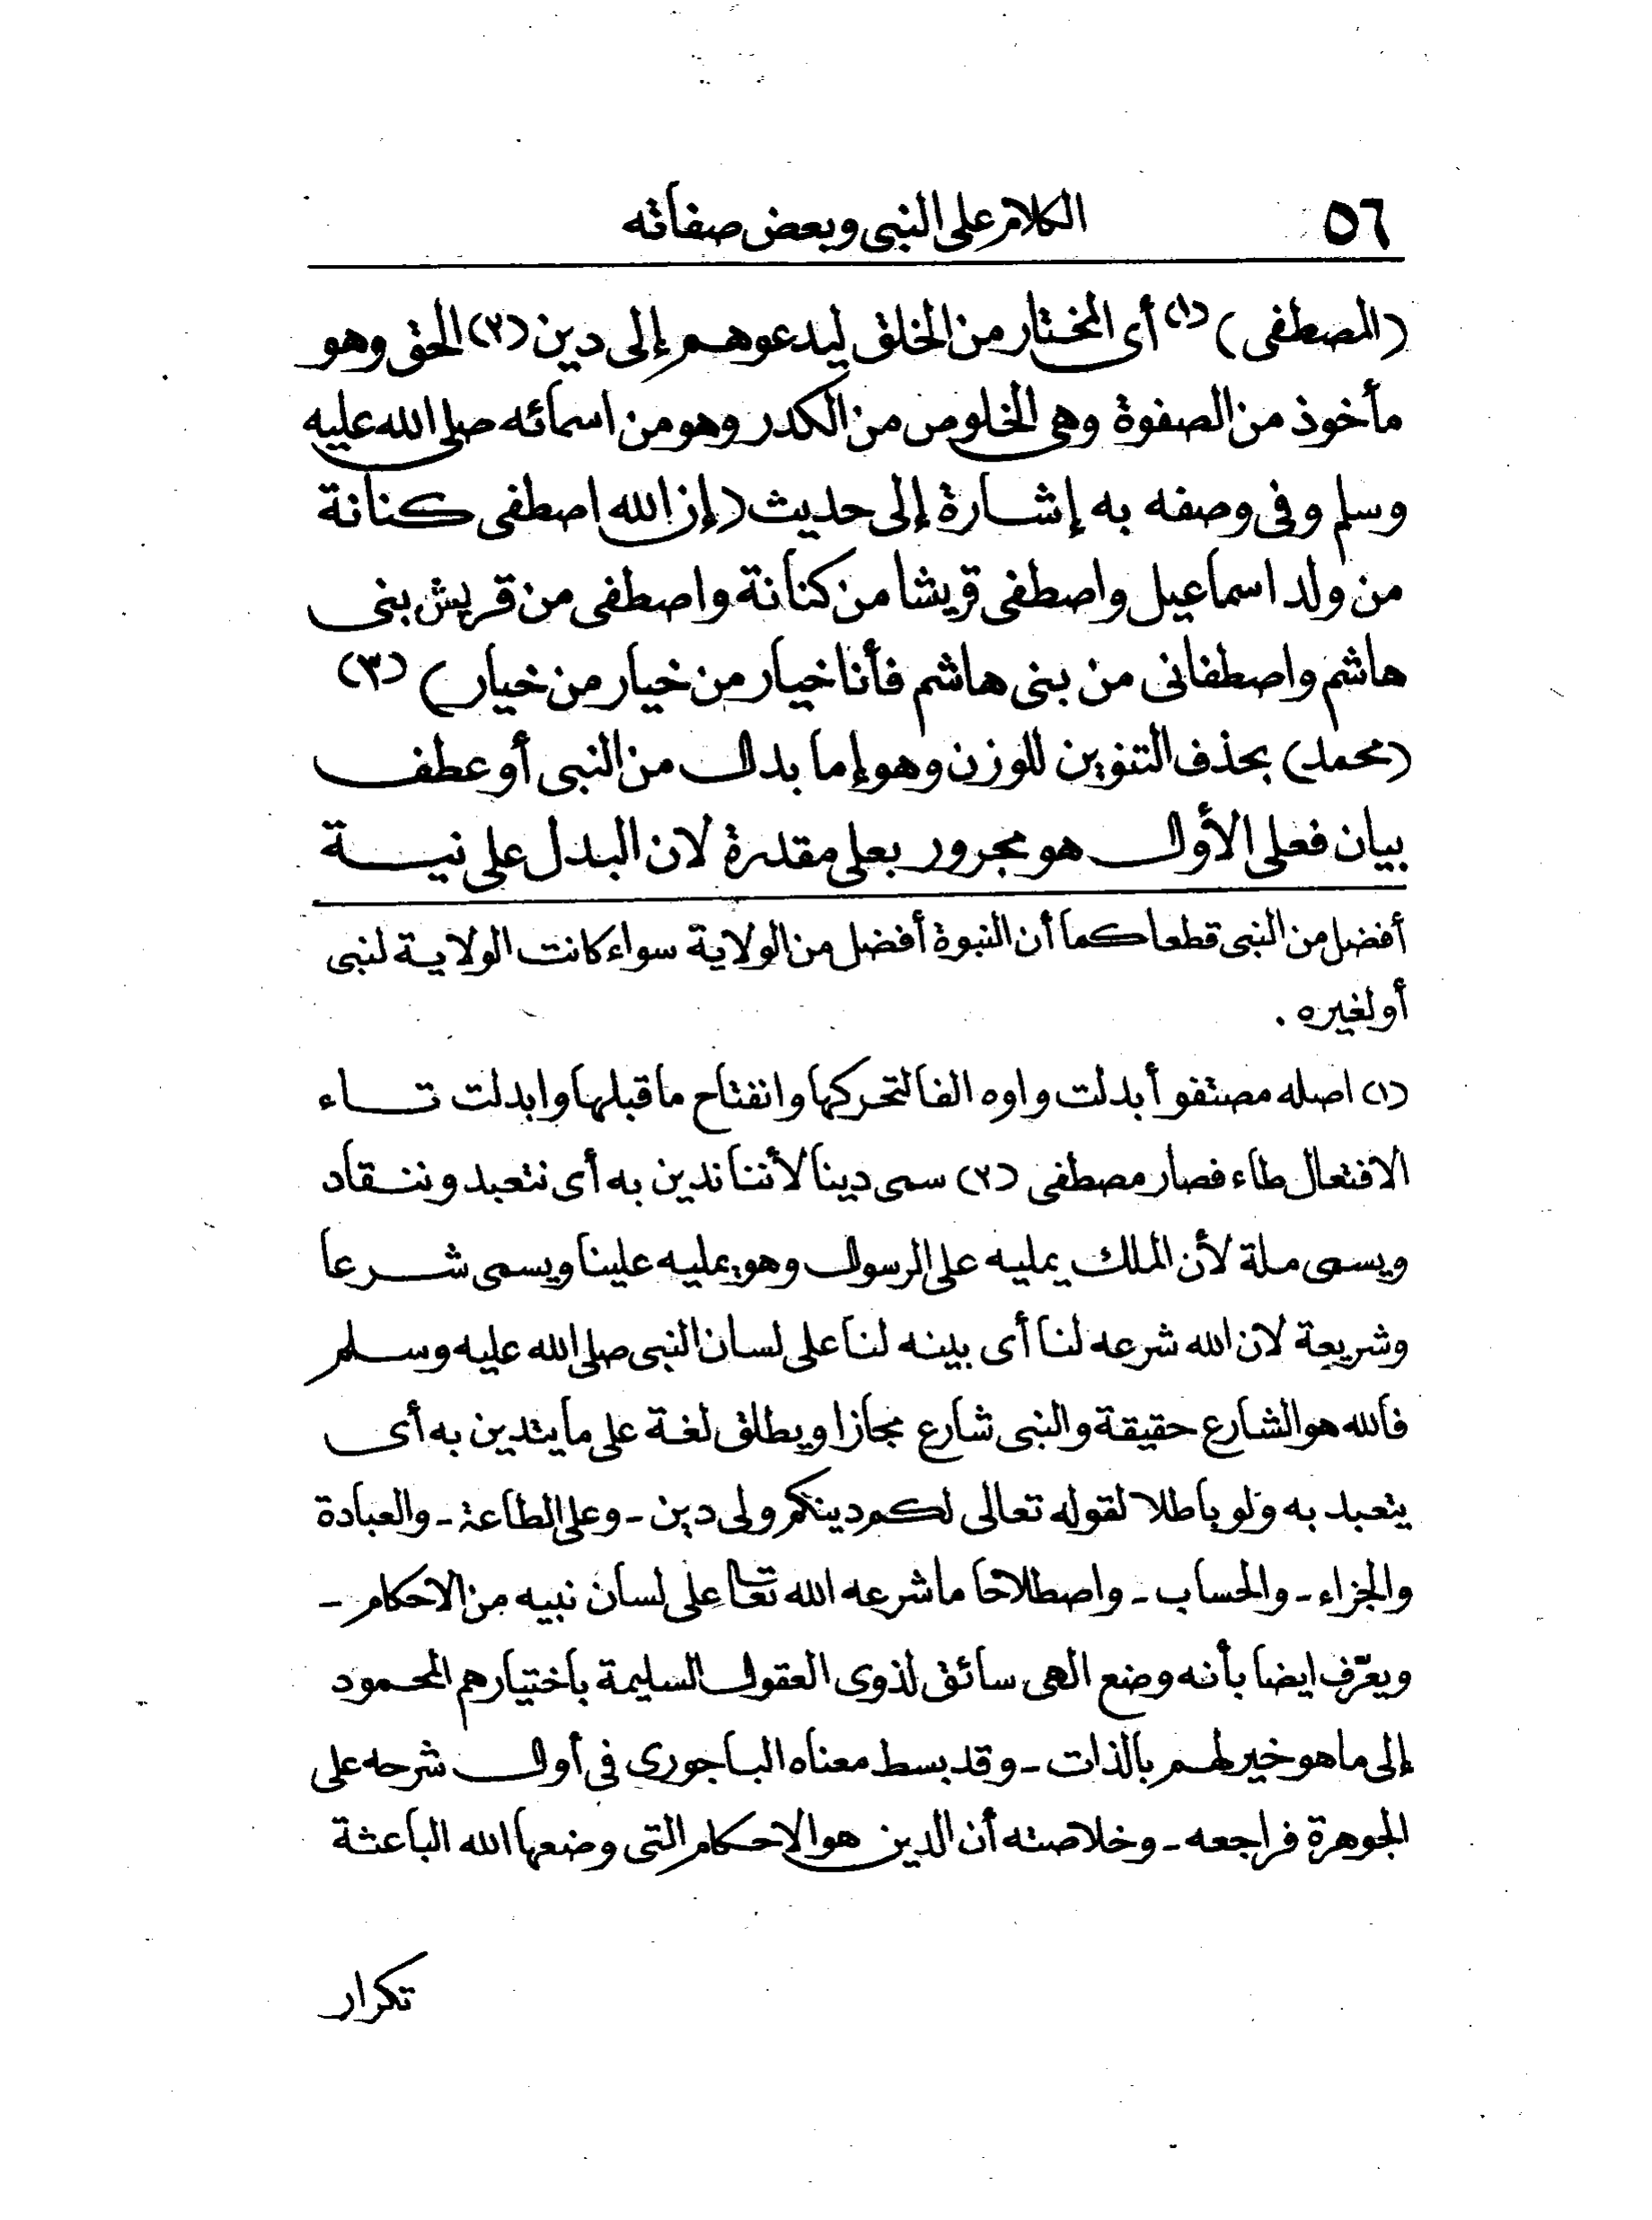 ٥٦ الكلام على النبى وبعض صفاته
(المصطفى) (١) أى المختار من الخلق ليدعوهم إلى دين (٢) الحق وهو
مأخوذ من الصفوة وهى الخلوص من الكدر وهو من اسمائه صلى الله عليه
وسلم وفى وصفه به إشارة إلى حديث (إن الله اصطفى كنانة
من ولد اسماعيل واصطفى قريشا من كنانة واصطفى من قريش بنى
هاشم واصطفانى من بنى هاشم فأنا خيار من خيار من خيار) (٣)
(محمد) بحذف التنوين للوزن وهو إما بدل من النبى أو عطف
بيان فعلى الأول هو مجرور بعلى مقدرة لان البدل على نية
أفضل من النبى قطعا كما أن النبوة أفضل من الولاية سواء كانت الولاية لنبى
أو لغيره .
(١) اصله مصتفو أبدلت واوه الفا لتحركها وانفتاح ما قبلها وابدلت تاء
الافتعال طاء فصار مصطفى (٢) سمى دينا لأننا ندين به أى نتعبد وننقاد
ويسمى ملة لأن الملك يمليه على الرسول وهو يمليه علينا ويسمى شرعا
وشريعة لان الله شرعه لنا أى بينه لنا على لسان النبى صلى الله عليه وسلم
فالله هو الشارع حقيقة والنبى شارع مجازا ويطلق لغة على ما يتدين به أى
يتعبد به ولو باطلا لقوله تعالى لكم دينكم ولى دين - وعلى الطاعة - والعبادة
والجزاء - والحساب - واصطلاحا ما شرعه الله تعالى على لسان نبيه من الاحكام -
ويعرّف ايضا بأنه وضع الهى سائق لذوى العقول السليمة باختيارهم المحمود
إلى ما هو خير لهم بالذات - وقد بسط معناه الباجورى فى أول شرحه على
الجوهرة فراجعه - وخلاصته أن الدين هو الاحكام التى وضعها الله الباعثة
تكرار